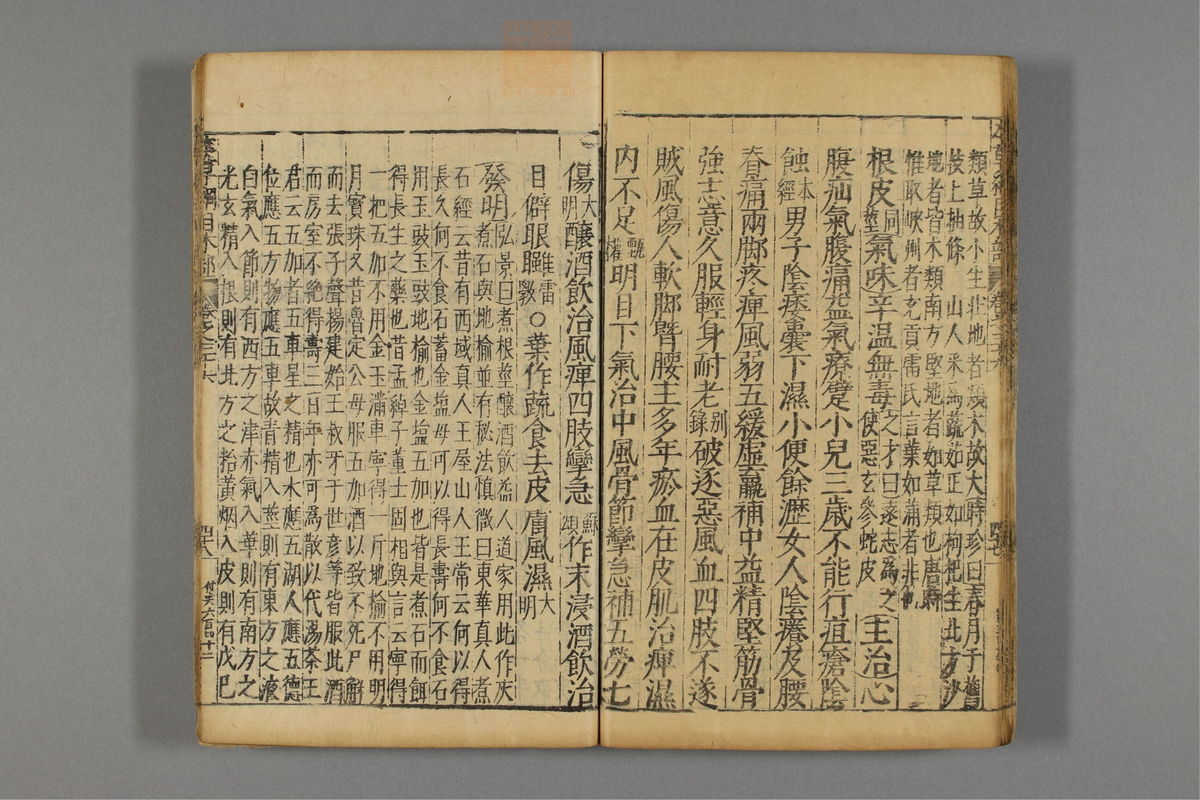 類草故小生北地者類木故大時珍曰春月于舊
枝上抽條山人采爲蔬茹正如枸杞生北方沙
地者皆木類南方堅地者如草類也唐時
惟取峽州者充貢雷氏言葉如蒲者非
根皮同莖氣味辛溫無毒之才曰遠志爲之使惡玄參蛇皮主治心
腹疝氣腹痛益氣療躄小兒三歲不能行疽瘡陰
蝕本經男子陰痿囊下濕小便餘瀝女人陰癢及腰
脊痛兩脚疼痺風弱五緩虛羸補中益精堅筋骨
強志意久服輕身耐老別錄破逐惡風血四肢不遂
賊風傷人軟脚䐴腰主多年瘀血在皮肌治痺濕
內不足甄權明目下氣治中風骨節攣急補五勞七
傷大明釀酒飲治風痺四肢攣急蘇頌作末浸酒飲治
目僻眼䀹雷斅○葉作蔬食去皮膚風濕大明
發明弘景曰煮根莖釀酒飲益人道家用此作灰
煮石與地榆並有秘法慎微曰東華真人煮
石經云昔有西域真人王屋山人王常云何以得
長久何不食石蓄金鹽母可以得長壽何不食石
用玉豉玉豉地榆也金鹽五加也皆是煮石而餌
得長生之藥也昔孟綽子董士固相與言云寧得
一把五加不用金玉滿車寧得一斤地榆不用明
月寶珠又昔魯定公母服五加酒以致不死尸解
而去張子聲楊建始王叔牙于世彥等皆服此酒
而房室不絕得壽三百年亦可爲散以代湯茶王
君云五加者五車星之精也水應五湖人應五德
位應五方物應五車故青精入莖則有東方之液
白氣入節則有西方之津赤氣入華則有南方之
光玄精入根則有北方之飴黃烟入皮則有戊己
本草綱目木部 卷之三十六 四八